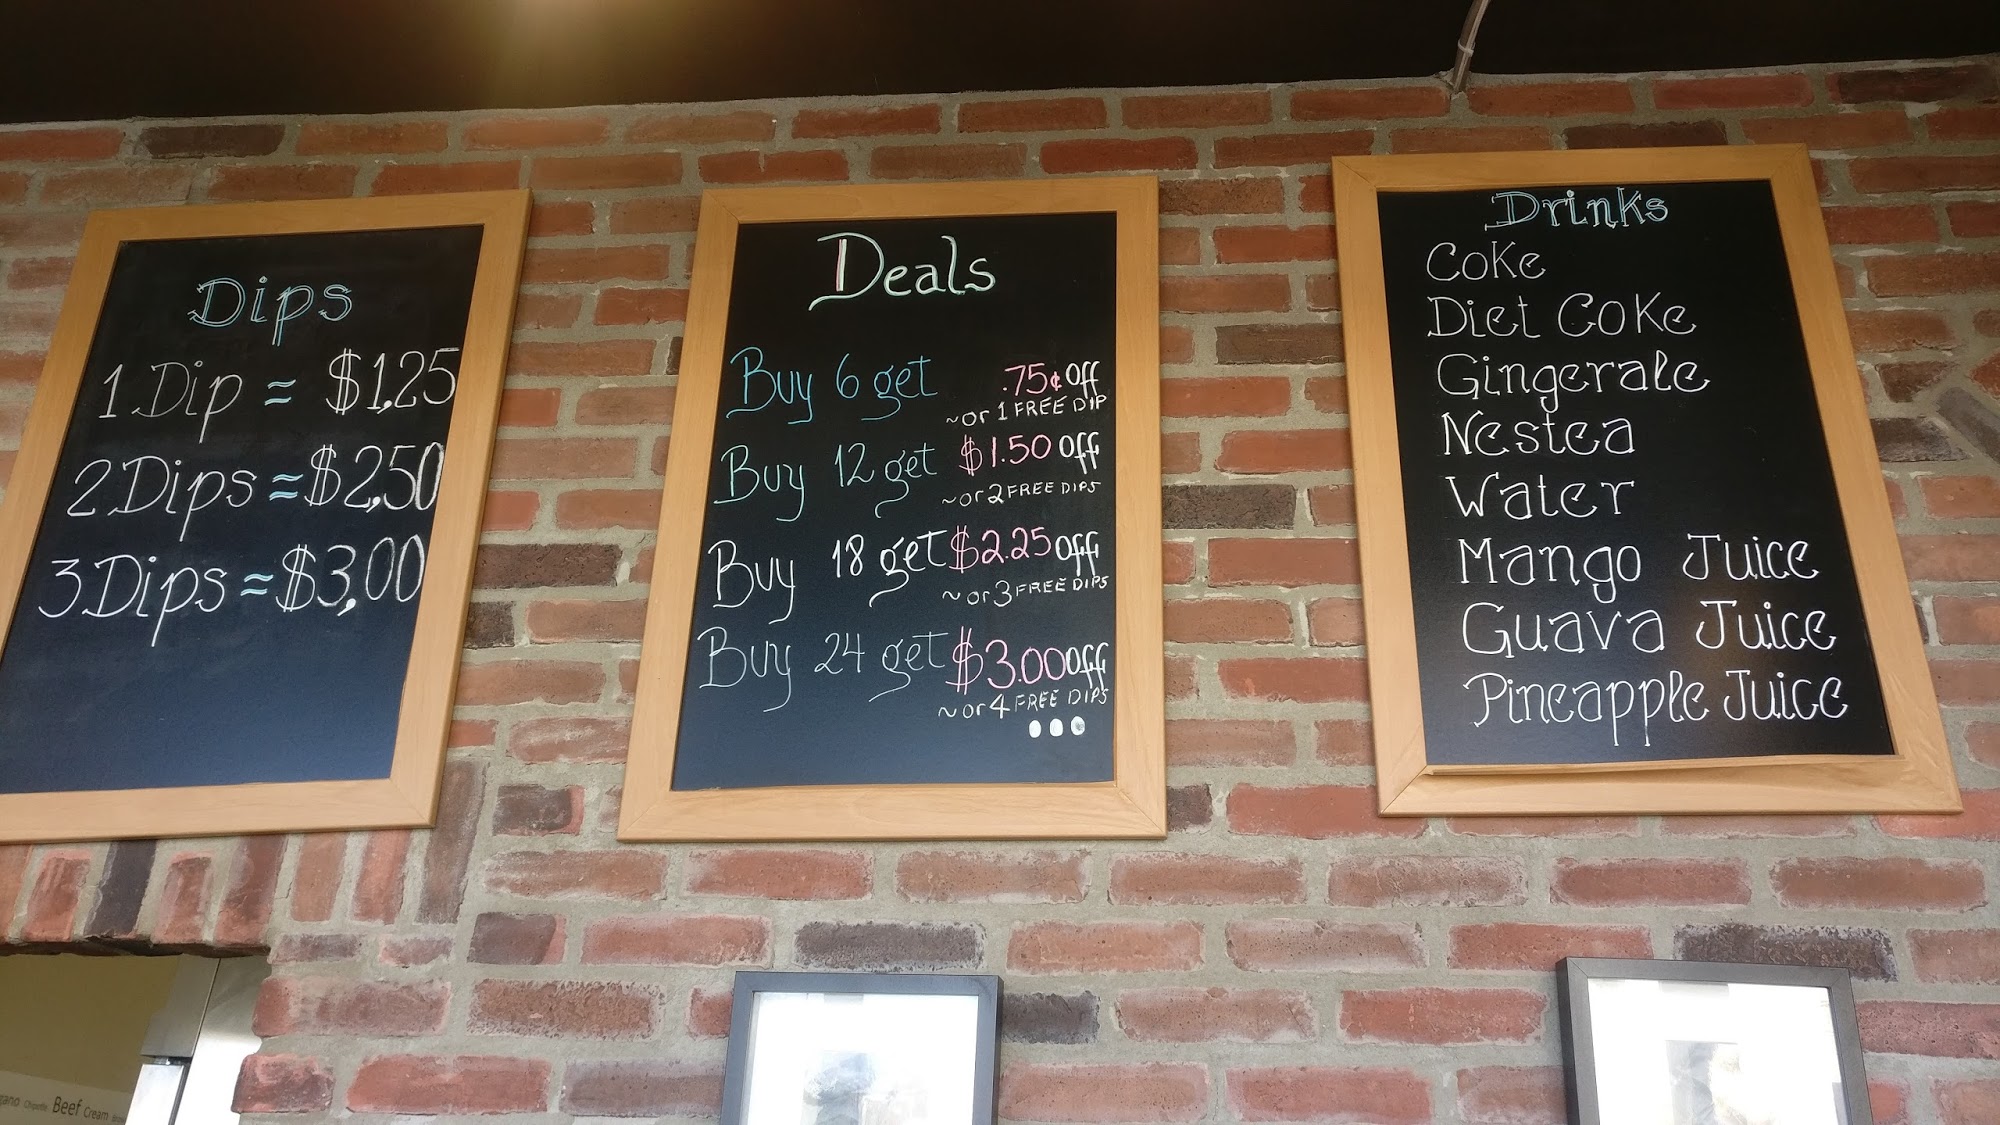 Dips
1 Dip = $1.25
2 Dips = $2.50
3 Dips = $3.00
Deals
Buy 6 get .75¢ off
~or 1 FREE DIP
Buy 12 get $1.50 off
~or 2 FREE DIPS
Buy 18 get $2.25 off
~or 3 FREE DIPS
Buy 24 get $3.00 off
~or 4 FREE DIPS
...
Drinks
Coke
Diet Coke
Gingerale
Nestea
Water
Mango Juice
Guava Juice
Pineapple Juice
Chipotle Beef Cream